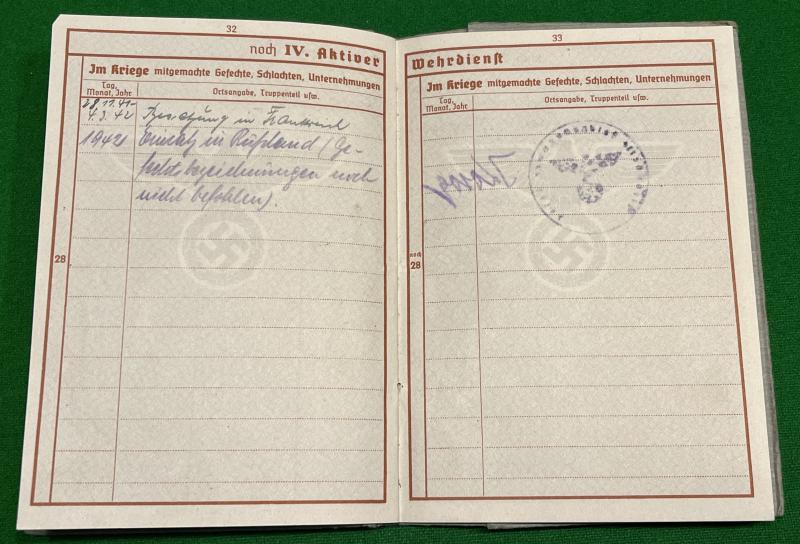 32
noch IV. Aktiver
Im Kriege mitgemachte Gefechte, Schlachten, Unternehmungen
Tag, Monat, Jahr
Ortsangabe, Truppenteil usw.
28.11.41-
4.3.42 Besetzung in Frankreich
1942 Einsatz in Rußland (Ge-
fechtsbezeichnungen noch
nicht befohlen).
28
33
Wehrdienst
Im Kriege mitgemachte Gefechte, Schlachten, Unternehmungen
Tag, Monat, Jahr
Ortsangabe, Truppenteil usw.
noch
28